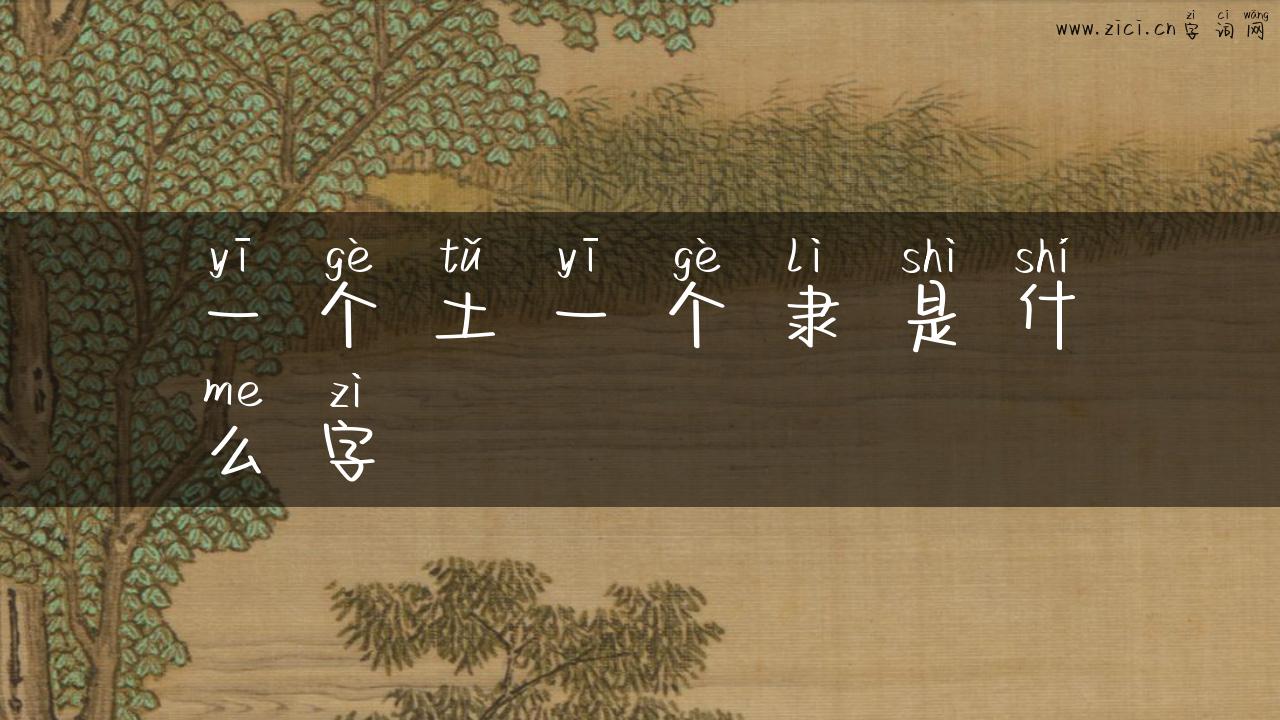 zì cí wǎng
www.zici.cn 字词网
yī gè tǔ yī gè lì shì shí
一个土一个隶是什
me zì
么字